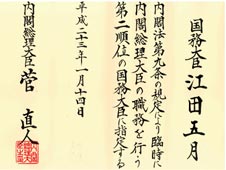 国務大臣 江田五月
内閣法第九条の規定により臨時に
内閣総理大臣の職務を行う
第二順位の国務大臣に指定する
平成二十三年一月十四日
内閣総理大臣 菅 直人